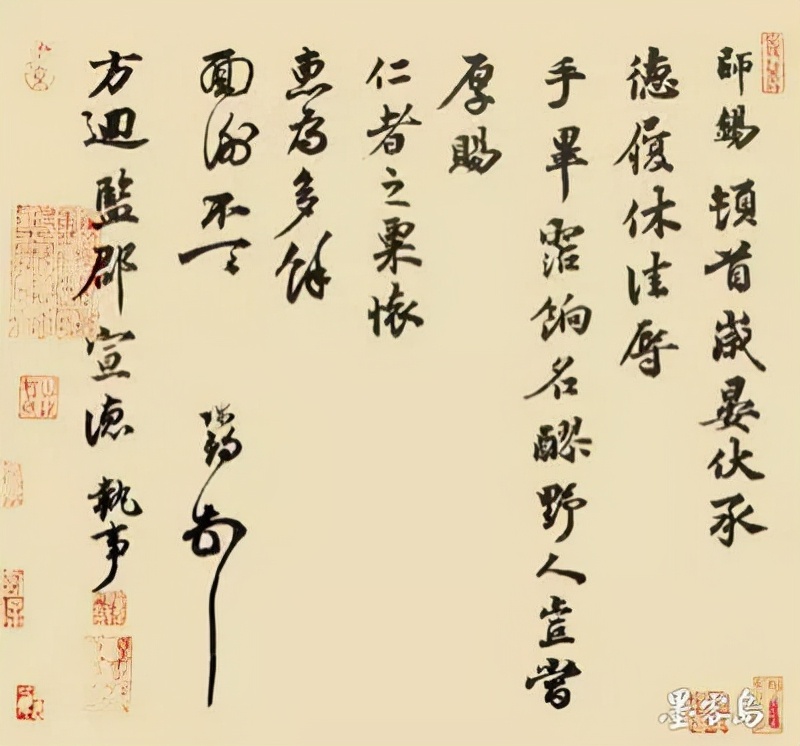 師錫頓首歲晏伏承
德履休佳辱
手畢霑餉名醪野人豈當
厚賜
仁者之粟懷
惠為多餘
面謝不一一 師錫
方迴監郡宣德執事
墨客島